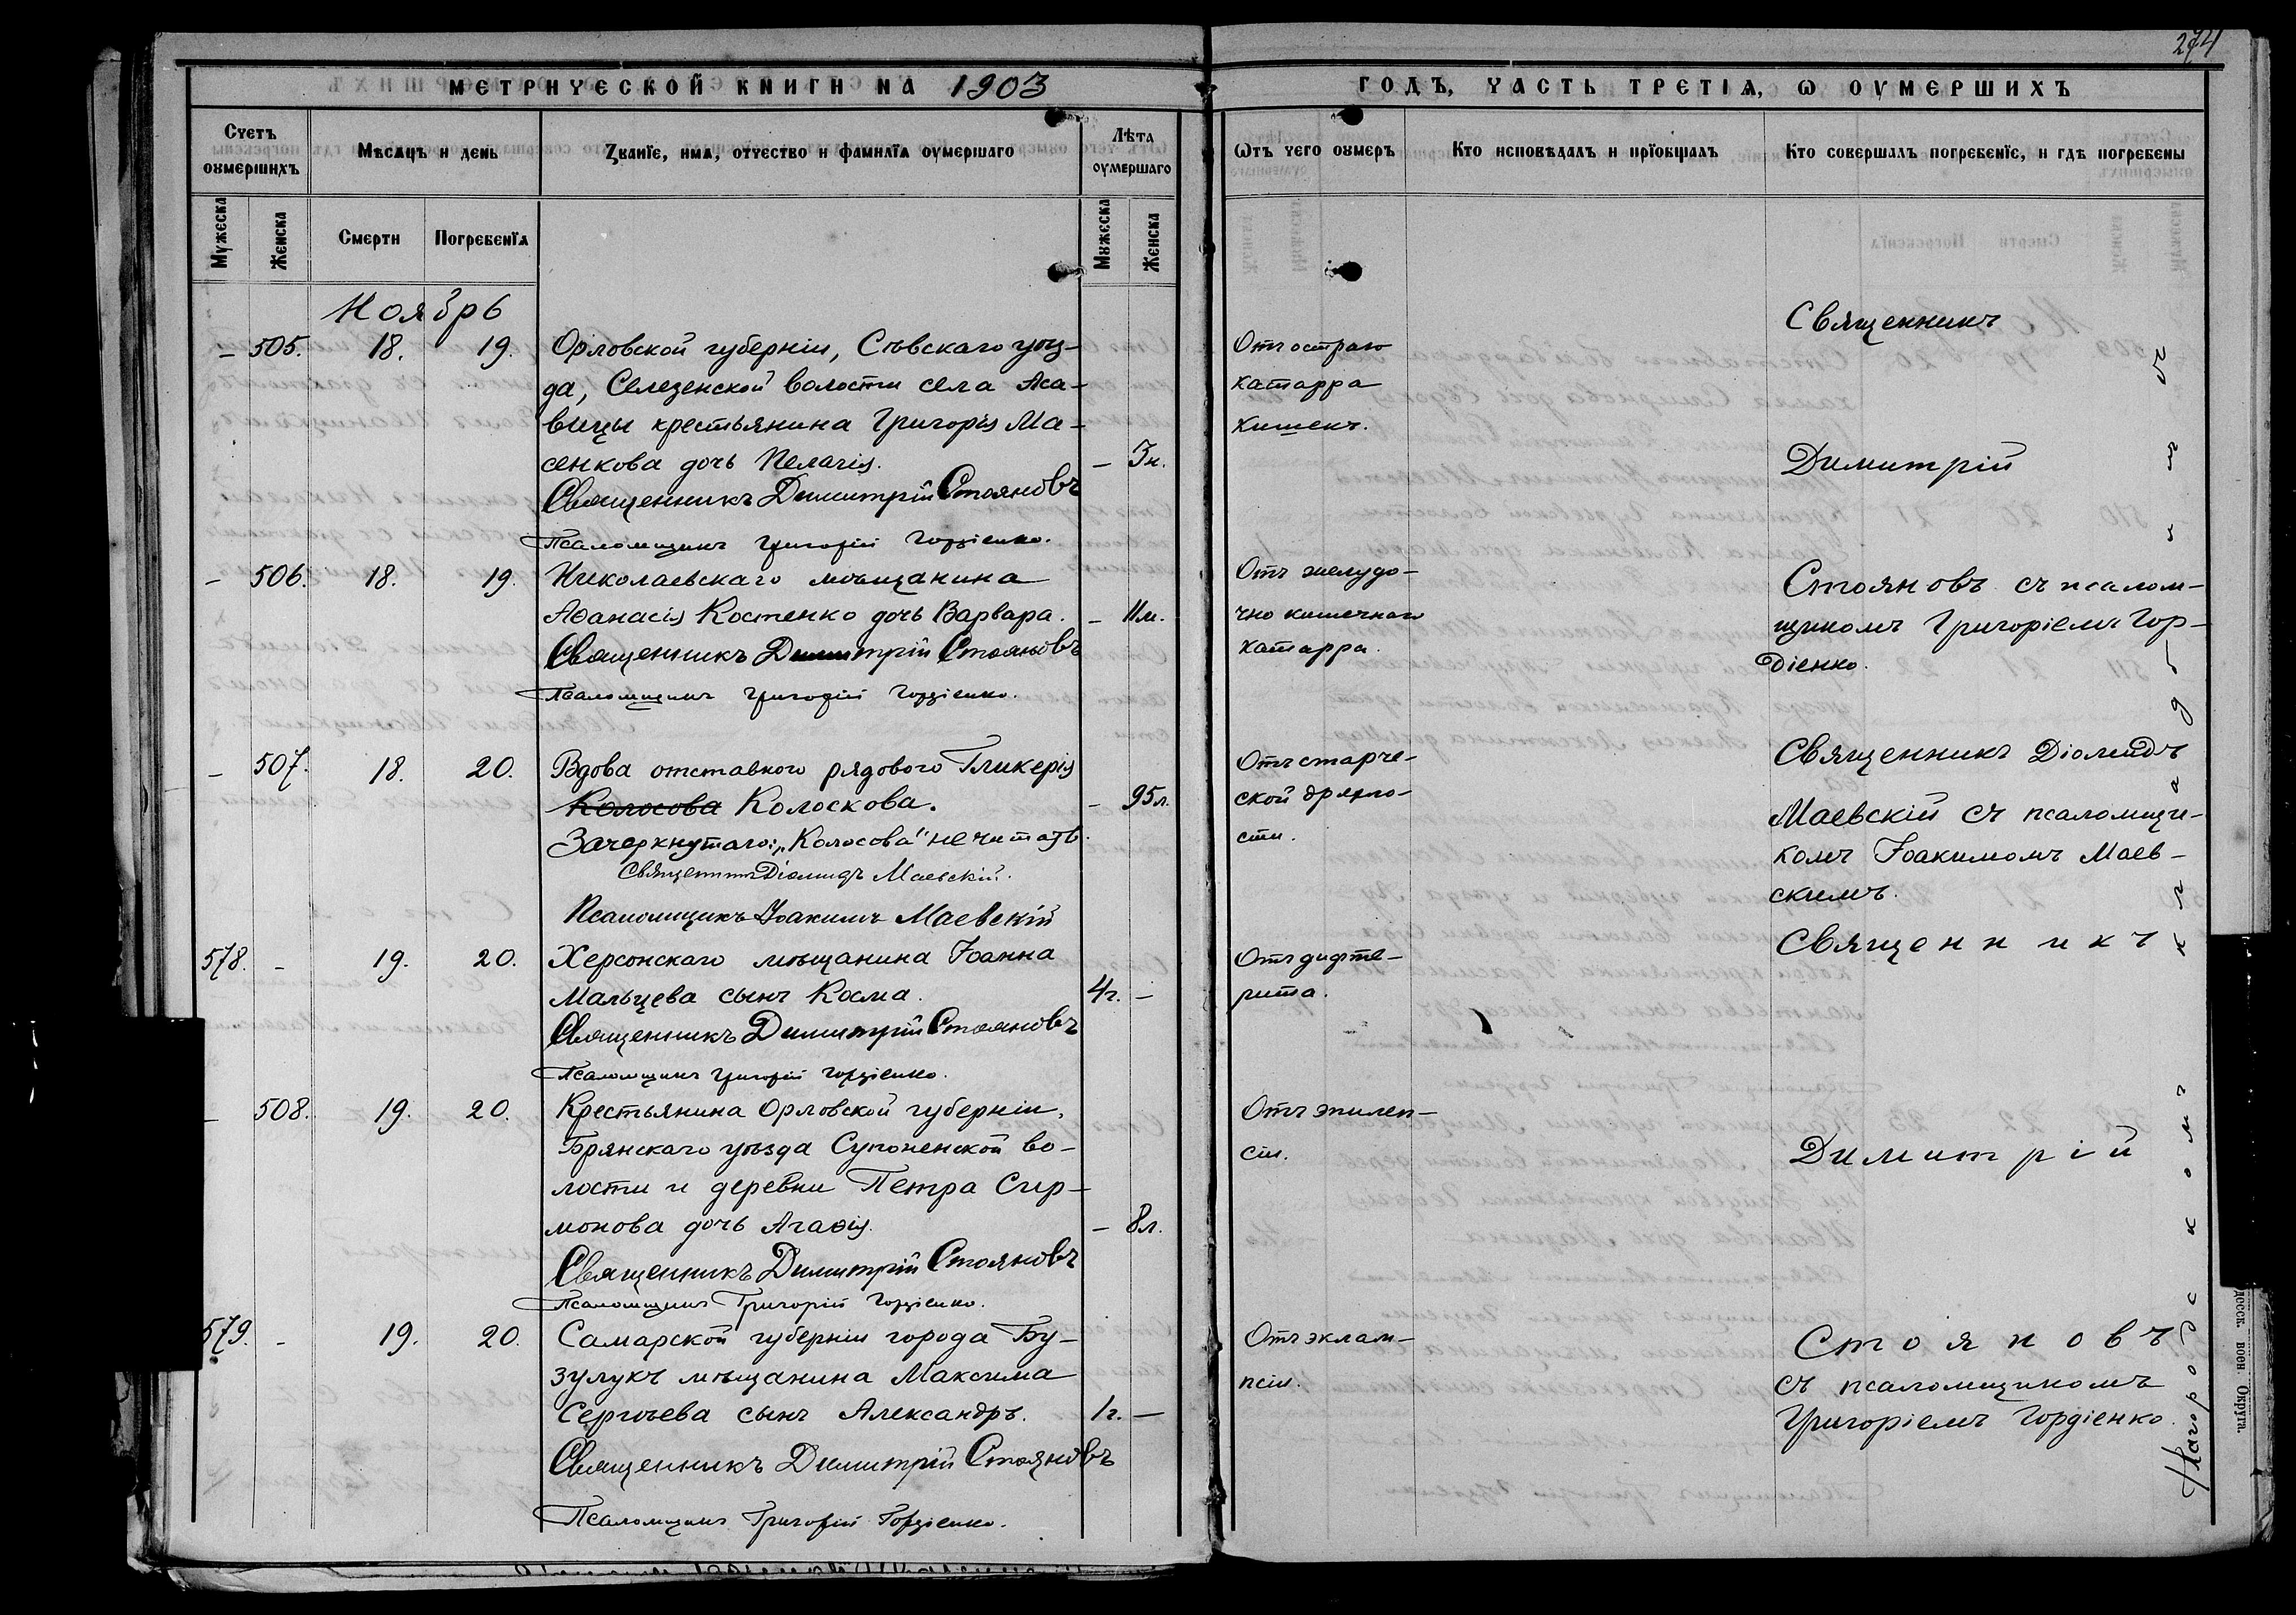 274
МЕТРИЧЕСКОЙ КНИГИ НА 1903
ГОДЪ, ЧАСТЬ ТРЕТІѦ, Ѡ ОУМЕРШИХЪ
Счетъ оумершихъ
Мѣсѧцъ и день
Званїе, имѧ, отчество и фамилїѧ оумершаго
Лѣта оумершаго
Ѡтъ чего оумеръ
Кто исповѣдалъ и прїобщалъ
Кто совершалъ погребенїе, и гдѣ погребены
Мужеска
Женска
Смерти
Погребенїѧ
Мужеска
Женска
Ноябрь
– 505. 18. 19. Орловской губерніи, Сѣвскаго уѣз-
да, Селезенской волости села Аса-
вицы крестьянина Григорія Ма-
сенкова дочь Пелагія. – 3н.
Священникъ Димитрій Стояновъ
Псаломщикъ Григорій Гордіенко.
Отъ остраго
катарра
кишекъ.
– 506. 18. 19. Николаевскаго мѣщанина
Аѳанасія Костенко дочь Варвара. – 11м.
Священникъ Димитрій Стояновъ
Псаломщикъ Григорій Гордіенко.
Отъ желудо-
чно кишечнаго
катарра.
Священникъ
Димитрій
Стояновъ съ псалом-
щикомъ Григоріемъ Гор-
діенко.
– 507. 18. 20. Вдова отставного рядового Гликерія
Колосова Колоскова. – 95л.
Зачеркнутаго: „Колосова" не читать.
Священникъ Діомидъ Маевскій.
Псаломщикъ Іоакимъ Маевскій
Отъ старче-
ской дряхло-
сти.
Священникъ Діомидъ
Маевскій съ псаломщи-
комъ Іоакимомъ Маев-
скимъ.
578. – 19. 20. Херсонскаго мѣщанина Іоанна
Мальцева сынъ Косма. 4г. –
Священникъ Димитрій Стояновъ
Псаломщикъ Григорій Гордіенко.
Отъ дифте-
рита.
– 508. 19. 20. Крестьянина Орловской губерніи,
Брянскаго уѣзда Супоненской во-
лости и деревни Петра Сир-
монова дочь Агаѳія. – 8л.
Священникъ Димитрій Стояновъ
Псаломщикъ Григорій Гордіенко.
Отъ эпилеп-
сіи.
579. – 19. 20. Самарской губерніи города Бу-
зулукъ мѣщанина Максима
Сергѣева сынъ Александръ. 1г. –
Священникъ Димитрій Стояновъ
Псаломщикъ Григорій Гордіенко.
Отъ эклам-
псіи.
Священникъ
Димитрій
Стояновъ
съ псаломщикомъ
Григоріемъ Гордіенко.
На городскомъ кладбищѣ
воен. Округа.